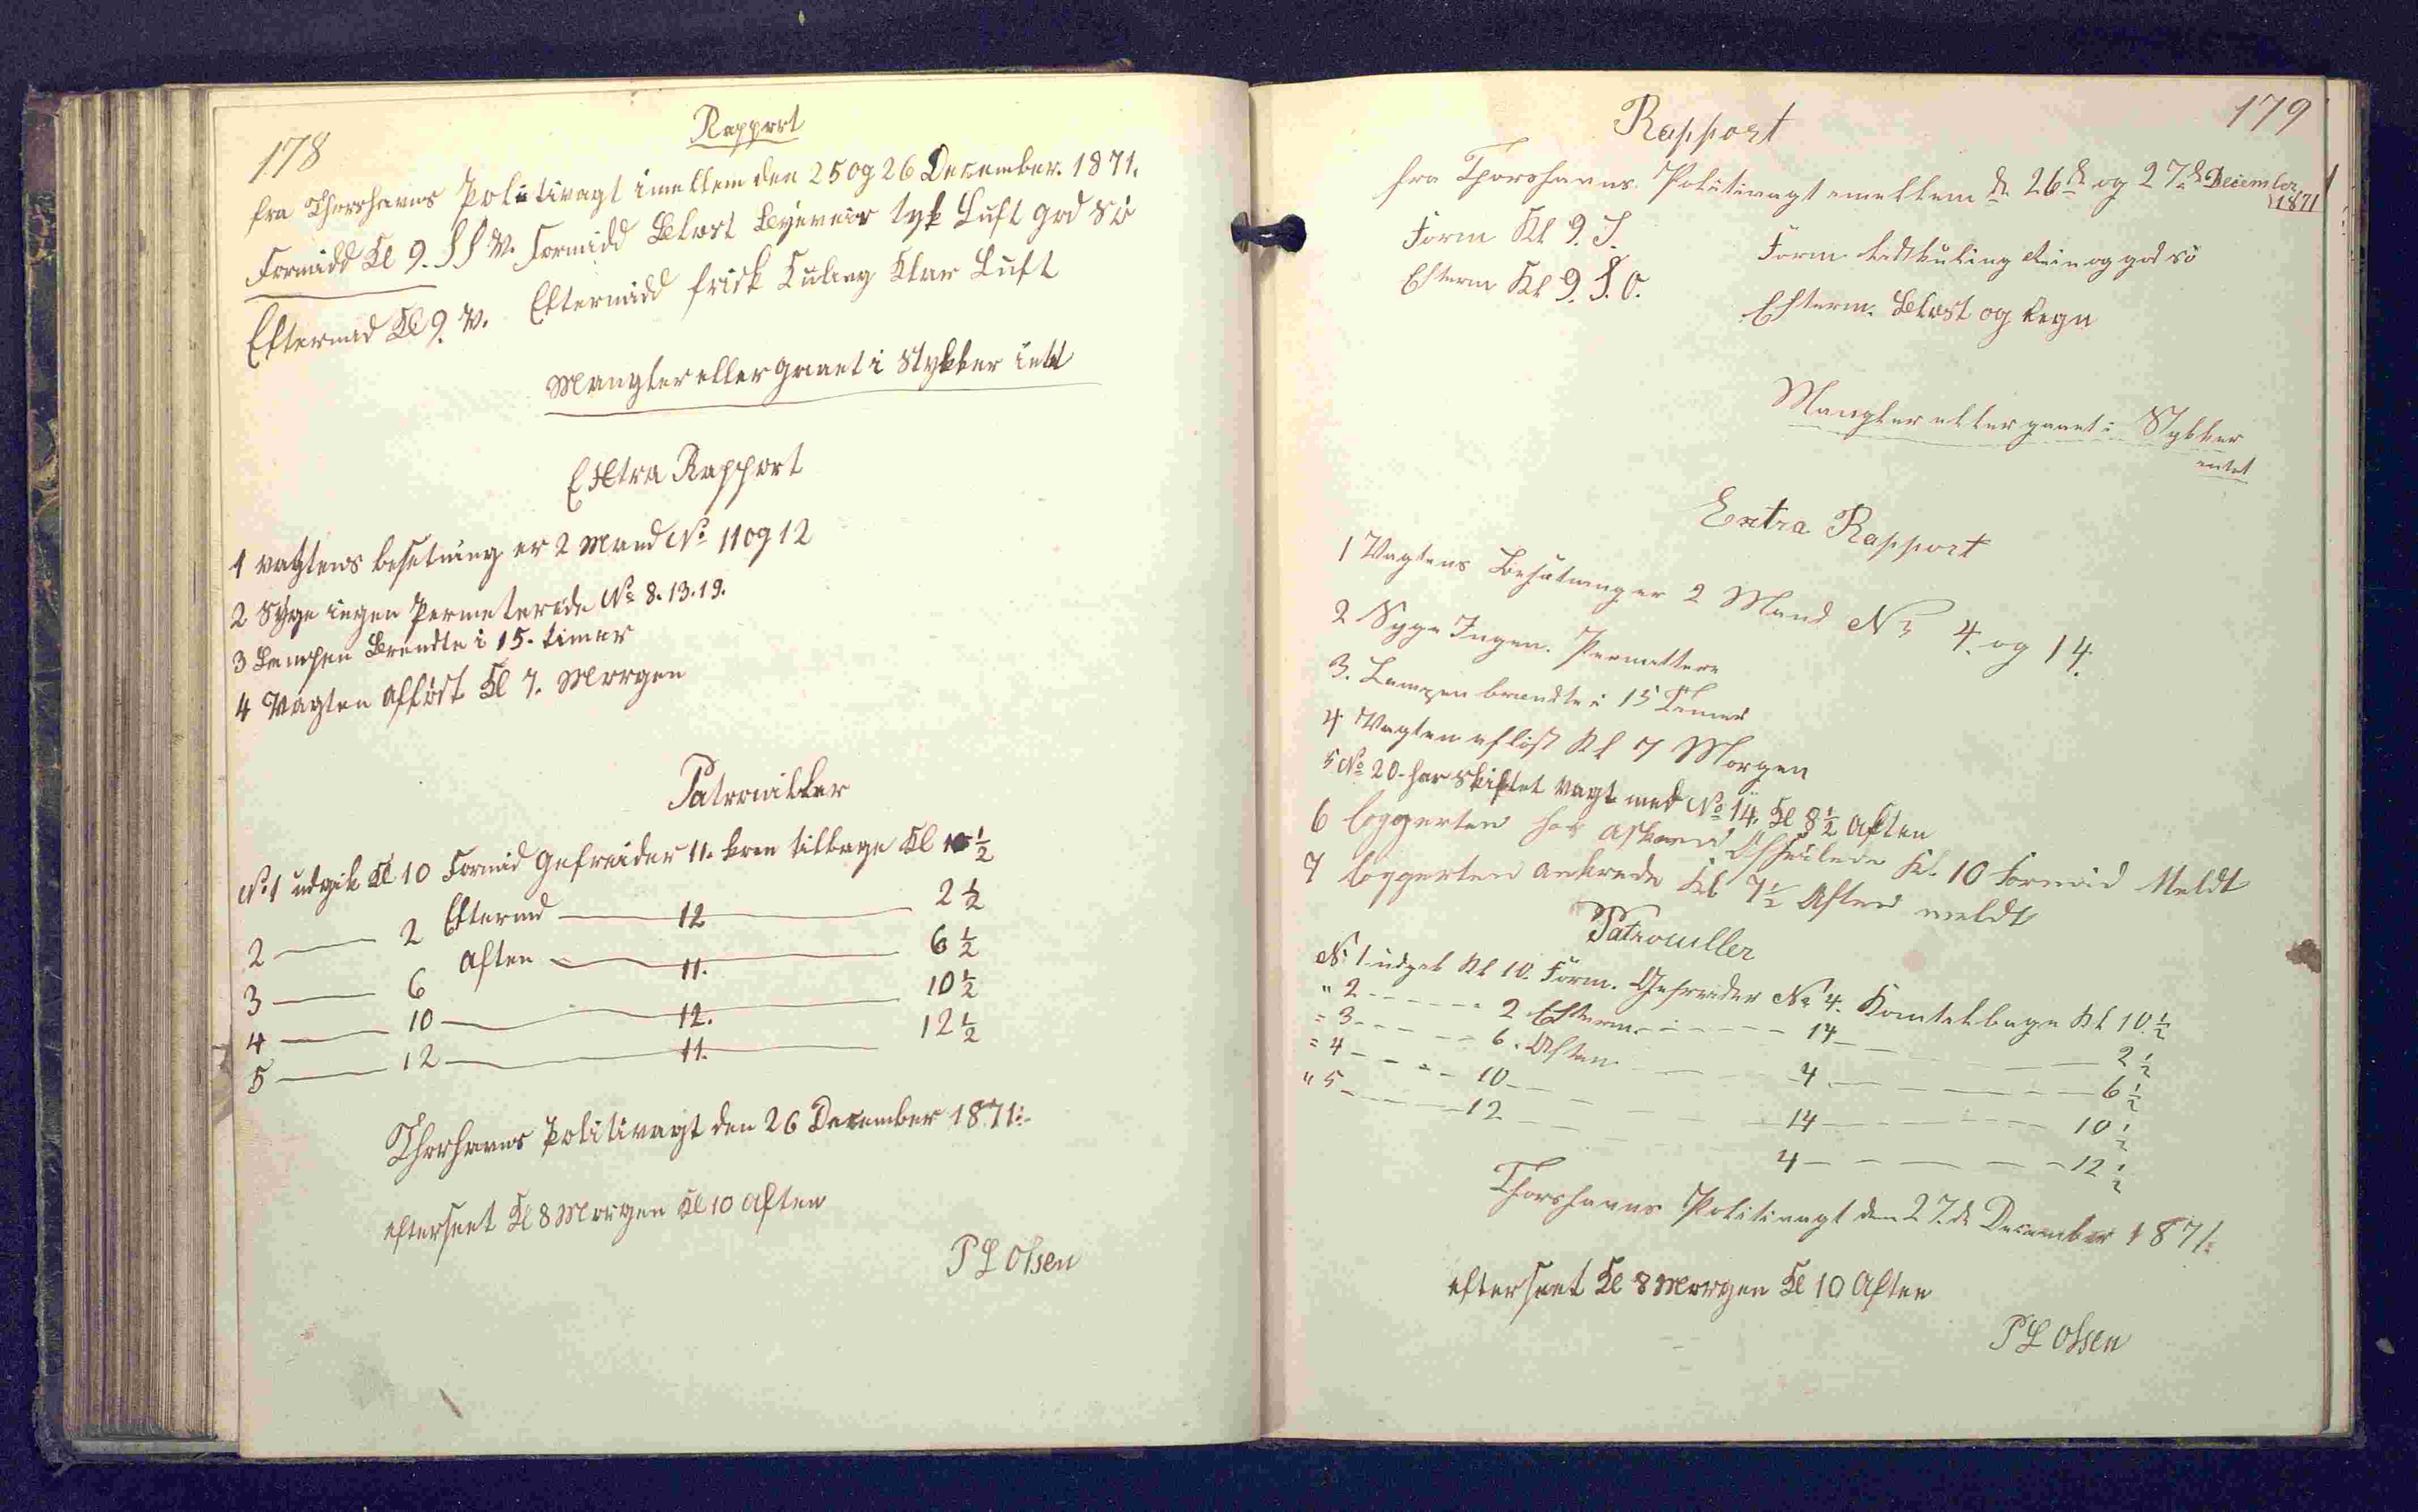 178
Rapport
fra Thorshavns Politivagt imellem den 25 og 26 December. 1871.
Formidd Kl 9. SSV. Formidd Blæst Byeveir tyk Luft god Sö
Eftermd Kl 9. V. Eftermidd frisk Kuling Klar Luft
Mangler eller gaaet i Stykker intet
Extra Rapport
1 vagtens besetning er 2 Mand No 11 og 12
2 Syge ingen Permeterede No 8. 13. 19.
3 Lampen Brendte i 15. timer
4 Vagten aflöst Kl 7. Morgen
Patrouiller
No 1 udgik Kl 10 Formid Gefreider 11. kom tilbage Kl 10 ½
2 — 2 Eftermd — 12 — 2 ½
3 — 6 Aften — 11. — 6 ½
4 — 10 — 12. — 10 ½
5 — 12 — 11. — 12 ½
Thorhavns Politivagt den 26 December 1871.
efterseet Kl 8 Morgen Kl 10 Aften
P L Olsen
179
Rapport
fra Thorshavns Politivagt emellem d. 26de og 27de December 1871
Form Kl 9. S. Form. Kuling og god sö
Efterm Kl 9. S.O. Efterm. Blæst og Regn
Mangler eller gaaet i Stykker
entet
Extra Rapport
1 Vagtens Besætning er 2 Mand No 4. og 14.
2 Syge Ingen. Permittere
3. Lampen brændte i 15 Timer
4 Vagten aflöst Kl 7 Morgen
5 No 20. har Skiftet Vagt med No 14. Kl 8 ½ Aften
6 loggerten har Kl. 10 Formid Meldt
7 loggerten ankrede Kl 7 ½ Aften meldt
Patrouller
No 1 udgik Kl 10. Form. Gefreider No 4. Kom tilbage Kl 10 ½
" 2 - - - 2 Efterm. - - - 14 - - - 2 ½
= 3 - - - 6. Aften - - - 4 - - - 6 ½
= 4 - - - 10 - - - 14 - - - 10 ½
" 5 - - - 12 - - - 4 - - - 12 ½
Thorshavns Politivagt den 27.de December 1871.
efterseet Kl 8 Morgen Kl 10 Aften
P L Olsen